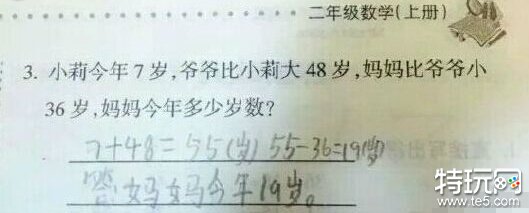 二年级数学(上册)
3. 小莉今年7岁,爷爷比小莉大48岁,妈妈比爷爷小
36岁,妈妈今年多少岁数?
7+48=55(岁) 55-36=19(岁)
答:妈妈今年19岁。
特玩网
www.te5.com